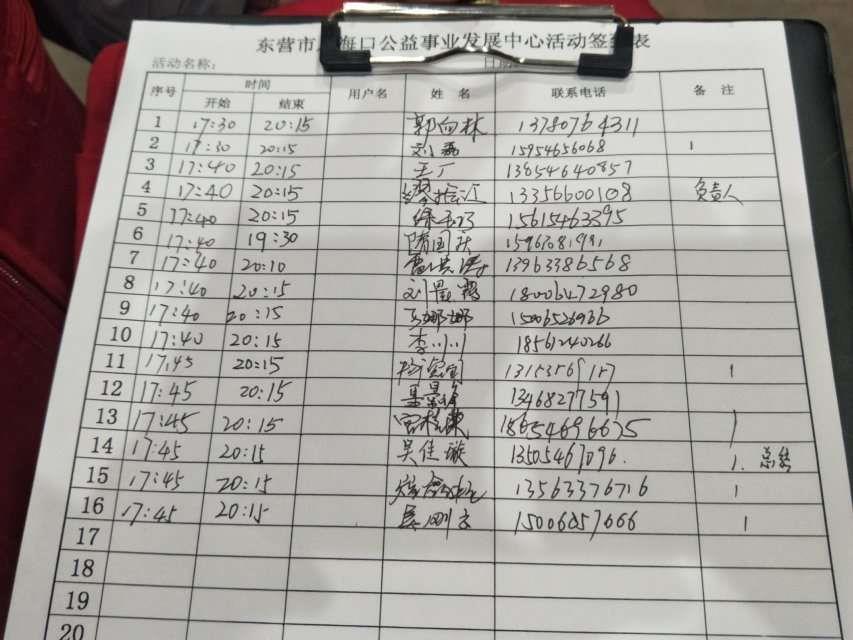 东营市 海口公益事业发展中心活动签到表
活动名称: 日期
序号 时间 用户名 姓 名 联系电话 备 注
开始 结束
1 17:30 20:15 郭向林 13780764311
2 17:30 20:15 刘磊 15954656068 1
3 17:40 20:15 王厂 13854640857
4 17:40 20:15 13356600108 负责人
5 17:40 20:15 15615463395
6 17:40 19:30 隋国
7 17:40 20:10 13963386568
8 17:40 20:15 刘 18006472980
9 17:40 20:15 娜娜
10 17:40 20:15 李川川 18561240266
11 17:45 20:15 1
12 17:45 20:15 13468277591
13 17:45 20:15 18654696675 1
14 17:45 20:15 吴佳璇 13505467096. 1. 总结
15 17:45 20:15 13563376716 1
16 17:45 20:15 15006857666 1
17
18
19
20